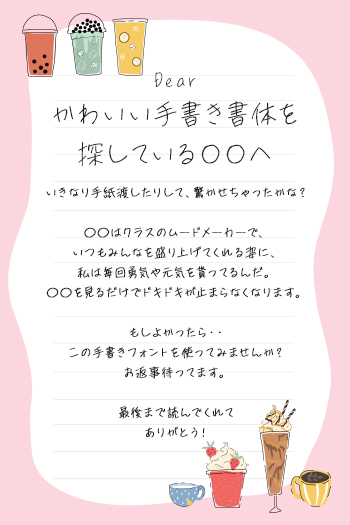 Dear
かわいい手書き書体を
探している〇〇へ
いきなり手紙渡したりして、驚かせちゃったかな?
〇〇はクラスのムードメーカーで、
いつもみんなを盛り上げてくれる姿に、
私は毎回勇気や元気を貰ってるんだ。
〇〇を見るだけでドキドキが止まらなくなります。
もしよかったら・・
この手書きフォントを使ってみませんか?
お返事待ってます。
最後まで読んでくれて
ありがとう!